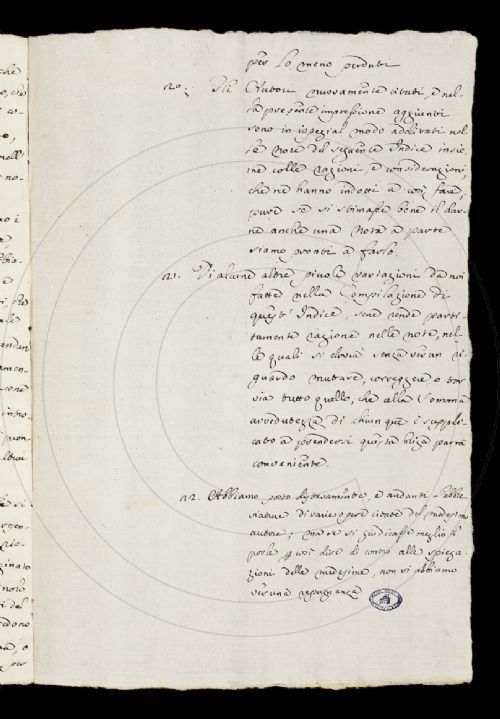 per lo meno perduti
20. Gli Autori nuovamente citati, e nel-
la presente impressione aggiunti
sono in ispezial modo additati nel-
le note del seguente Indice insie-
me colle ragioni, e considerazioni,
che ne hanno indotti a così fare,
pure se si stimasse bene il dar-
ne anche una Nota a parte
siamo pronti a farlo.
21. Di alcune altre picciole variazioni da noi
fatte nella Compilazione di
quest' Indice, sene rende parti-
tamente ragione nelle note, nel-
le quali si dovrà senza verun ri-
guardo mutare, correggere o tor
via tutto quello, che alla somma
avvedutezza di chiunque è suppli-
cato a prendersi questa briga parrà
conveniente.
22. Abbiamo posto distesamente, e andanti l'abbre-
viature di varie opere citate del medesimo
autore; ma se si giudicasse meglio il
porle così dire di contro alle spiega-
zioni delle medesime, non vi abbiamo
veruna repugnanza